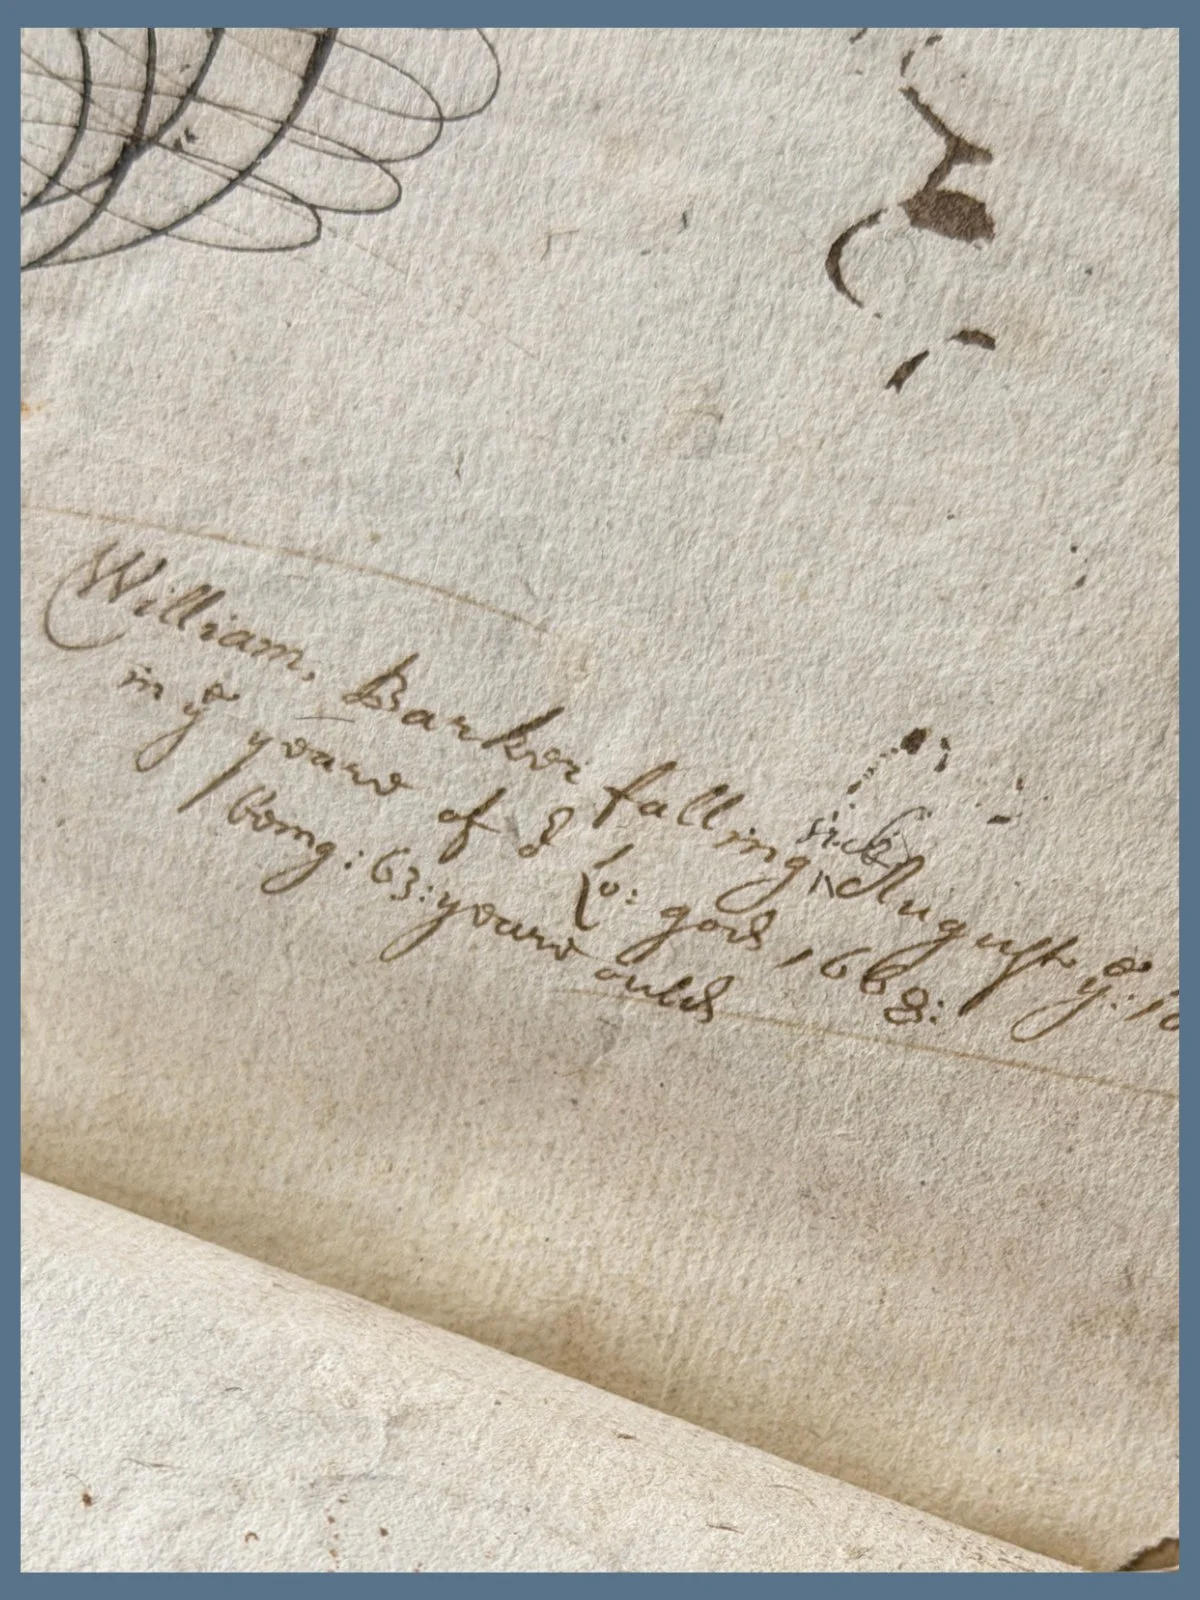 William, Barker falling ^sick August ye: 10
in ye yeare of o Lo: god, 1668:
being: 63: yeare ould